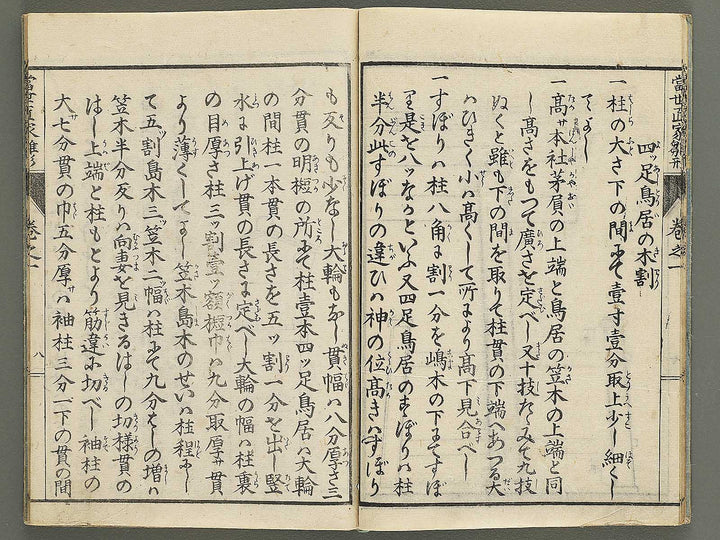 四ッ足鳥居の木割
一柱の大さ下の間にて壹寸壹分取上少し細くし
てよし
一高サ本社茅屓の上端と鳥居の笠木の上端と同
し高さをもつて廣さを定べし又十枝たるみて九枝
ぬくと雖も下の間を取りて柱貫の下端へあつる大
ハひきく小ハ高くして所により高下見合べし
一すぼりハ柱八角に割一分を嶋木の下にてすぼ
る是を八ッなかといふ又四足鳥居のすぼりハ柱
半分此すぼりの違ひハ神の位高きハすぼり
も反りも少なし大輪もなし貫幅ハ八分厚さ三
分貫の明楾の所にて柱壹本四ッ足鳥居ハ大輪
の間柱一本貫の長さを五ッ割一分を出し竪
水に引上げ貫の長さに定べし大輪の幅ハ柱裏
の目厚さ柱三ッ割壹ッ額楾巾ハ九分取厚サ貫
より薄くしてよし笠木島木のせいハ柱程にし
て五ッ割島木三ッ笠木二ッ幅ハ柱にて九分はしの増ハ
笠木半分反りハ向妻を見きるはしの切様貫の
はし上端と柱もとより筋違に切べし袖柱の
大七分貫の巾五分厚ハ袖柱三分一下の貫の間
卷之一
八
卷之一